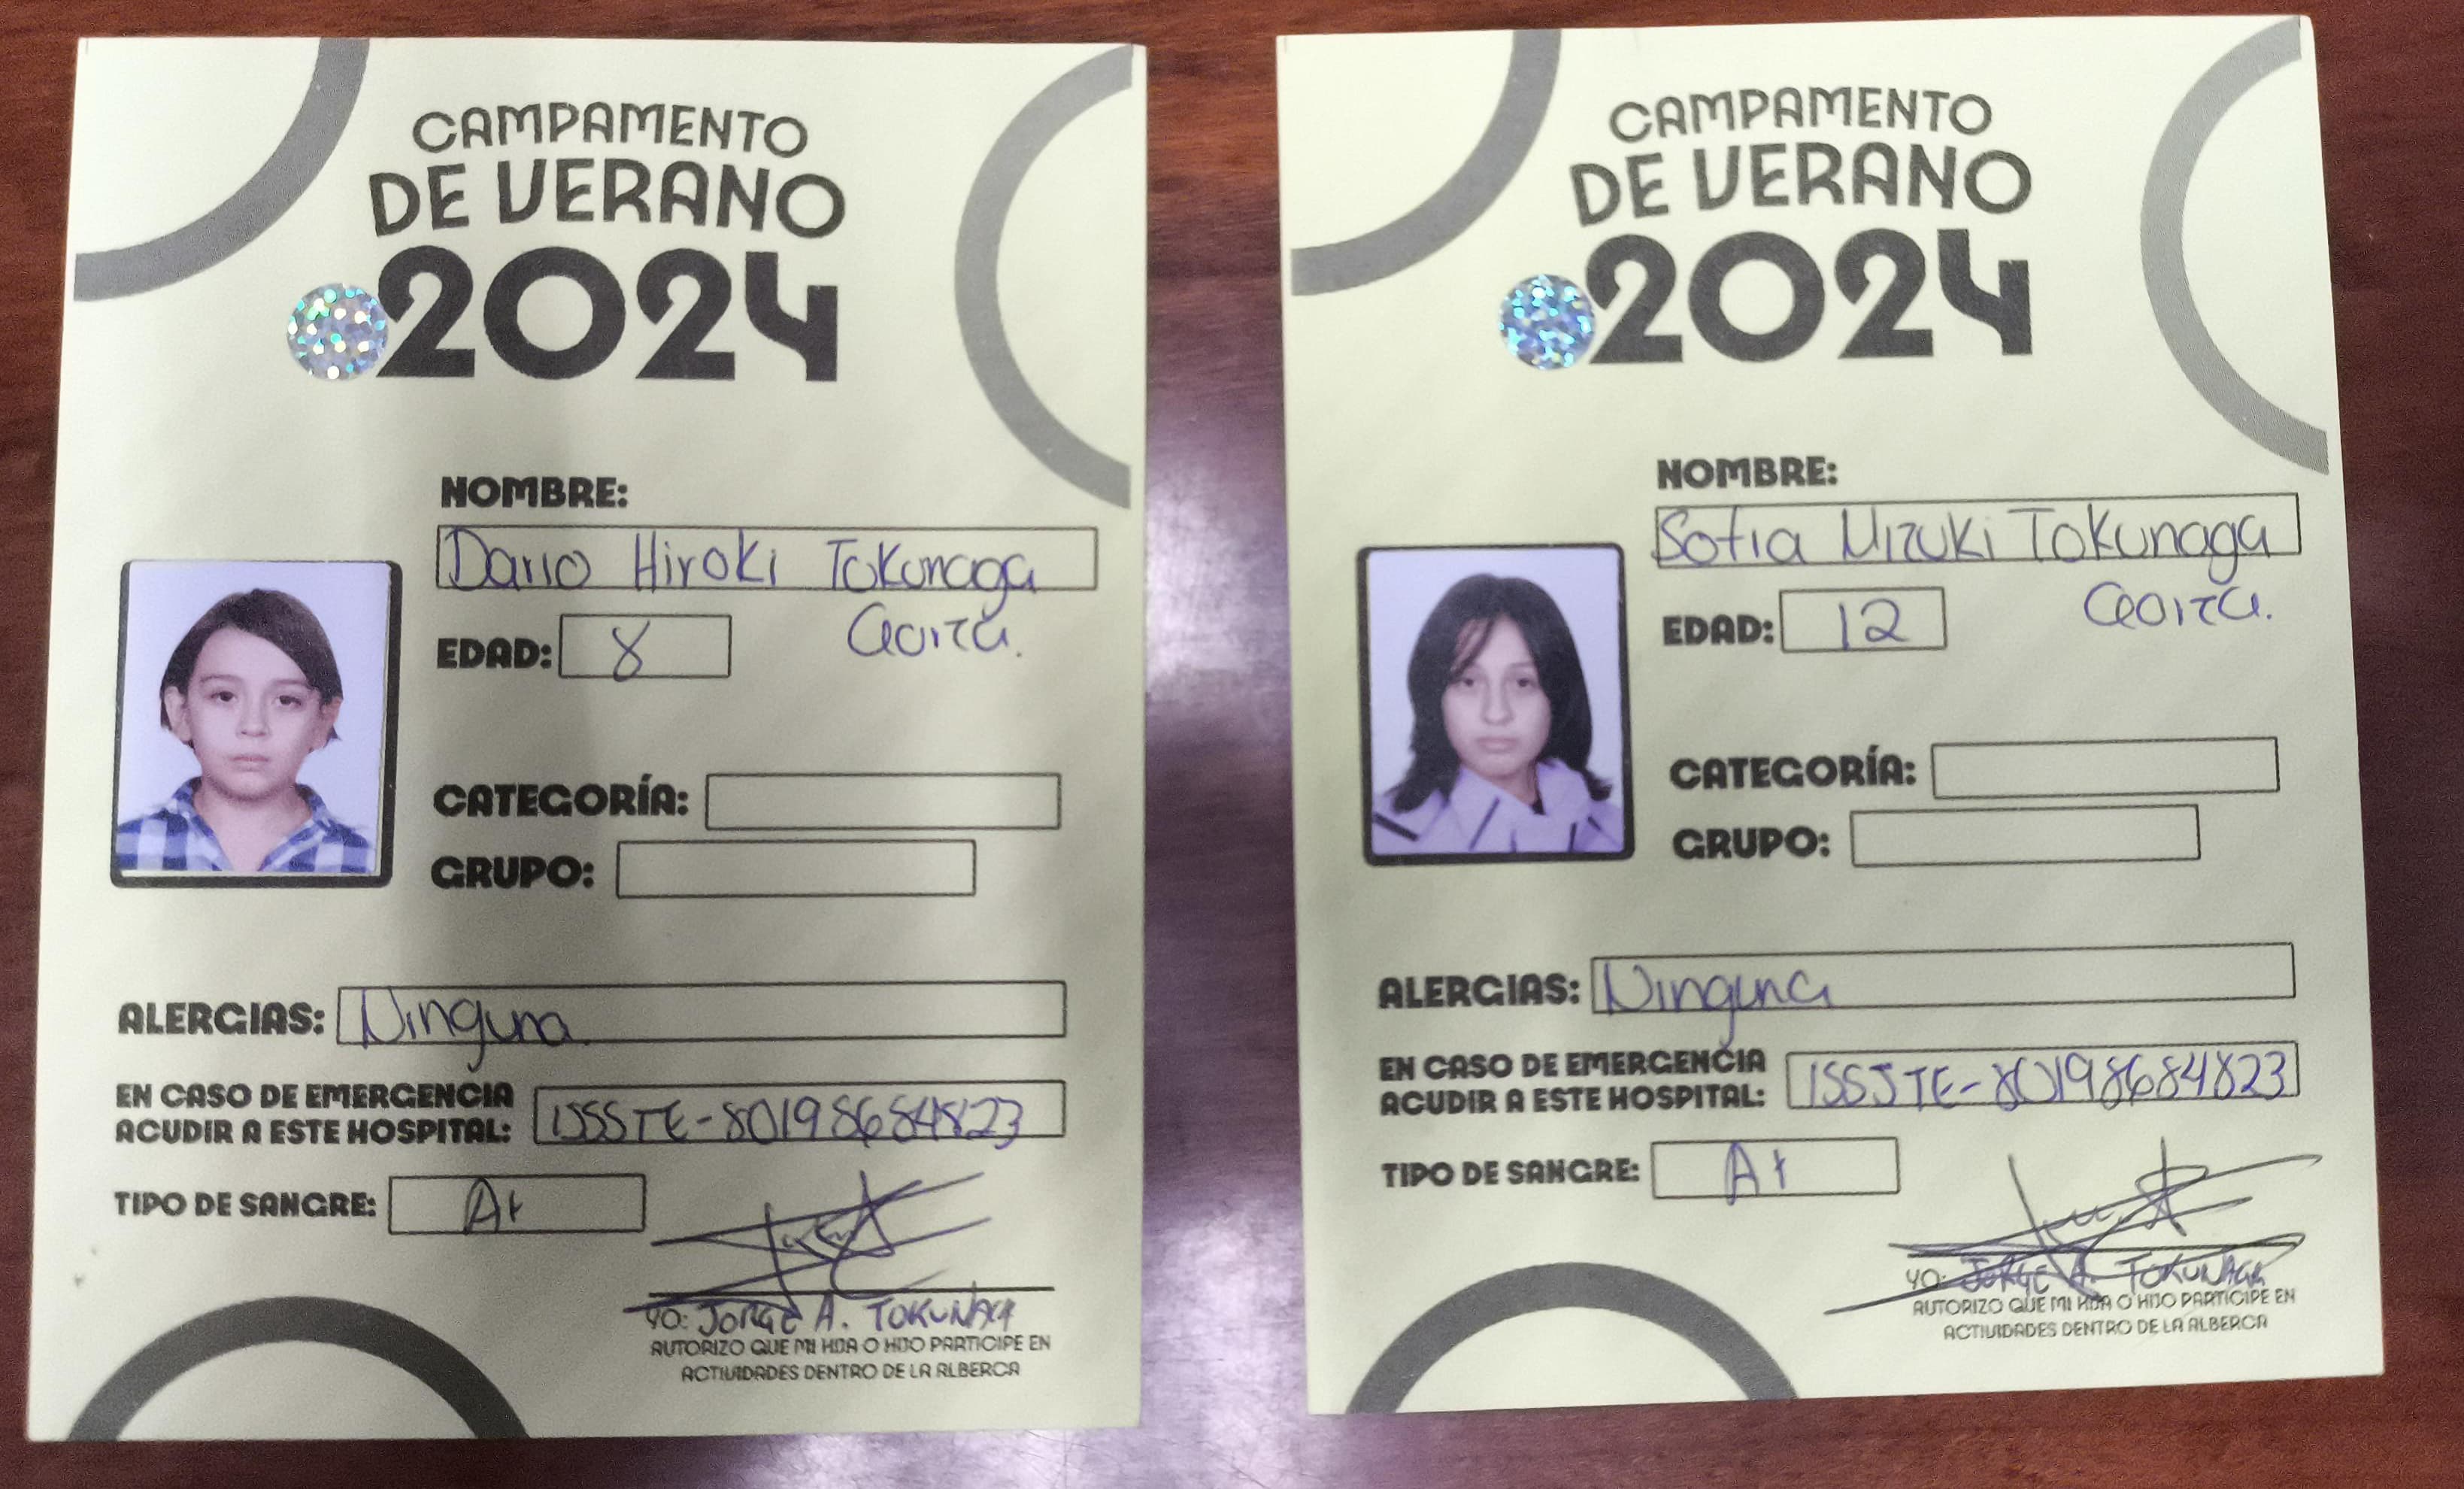 CAMPAMENTO
DE VERANO
2024
NOMBRE:
Dario Hiroki Tokunaga
EDAD: 8
CATEGORÍA:
GRUPO:
ALERGIAS: Ninguna
EN CASO DE EMERGENCIA
ACUDIR A ESTE HOSPITAL: ISSSTE-80198684823
TIPO DE SANGRE: A+
YO: JORGE A. TOKUNAGA
AUTORIZO QUE MI HIJA O HIJO PARTICIPE EN
ACTIVIDADES DENTRO DE LA ALBERCA
CAMPAMENTO
DE VERANO
2024
NOMBRE:
Sofia Mizuki Tokunaga
EDAD: 12
CATEGORÍA:
GRUPO:
ALERGIAS: Ninguna
EN CASO DE EMERGENCIA
ACUDIR A ESTE HOSPITAL: ISSSTE-80198684823
TIPO DE SANGRE: A+
YO: JORGE A. TOKUNAGA
AUTORIZO QUE MI HIJA O HIJO PARTICIPE EN
ACTIVIDADES DENTRO DE LA ALBERCA